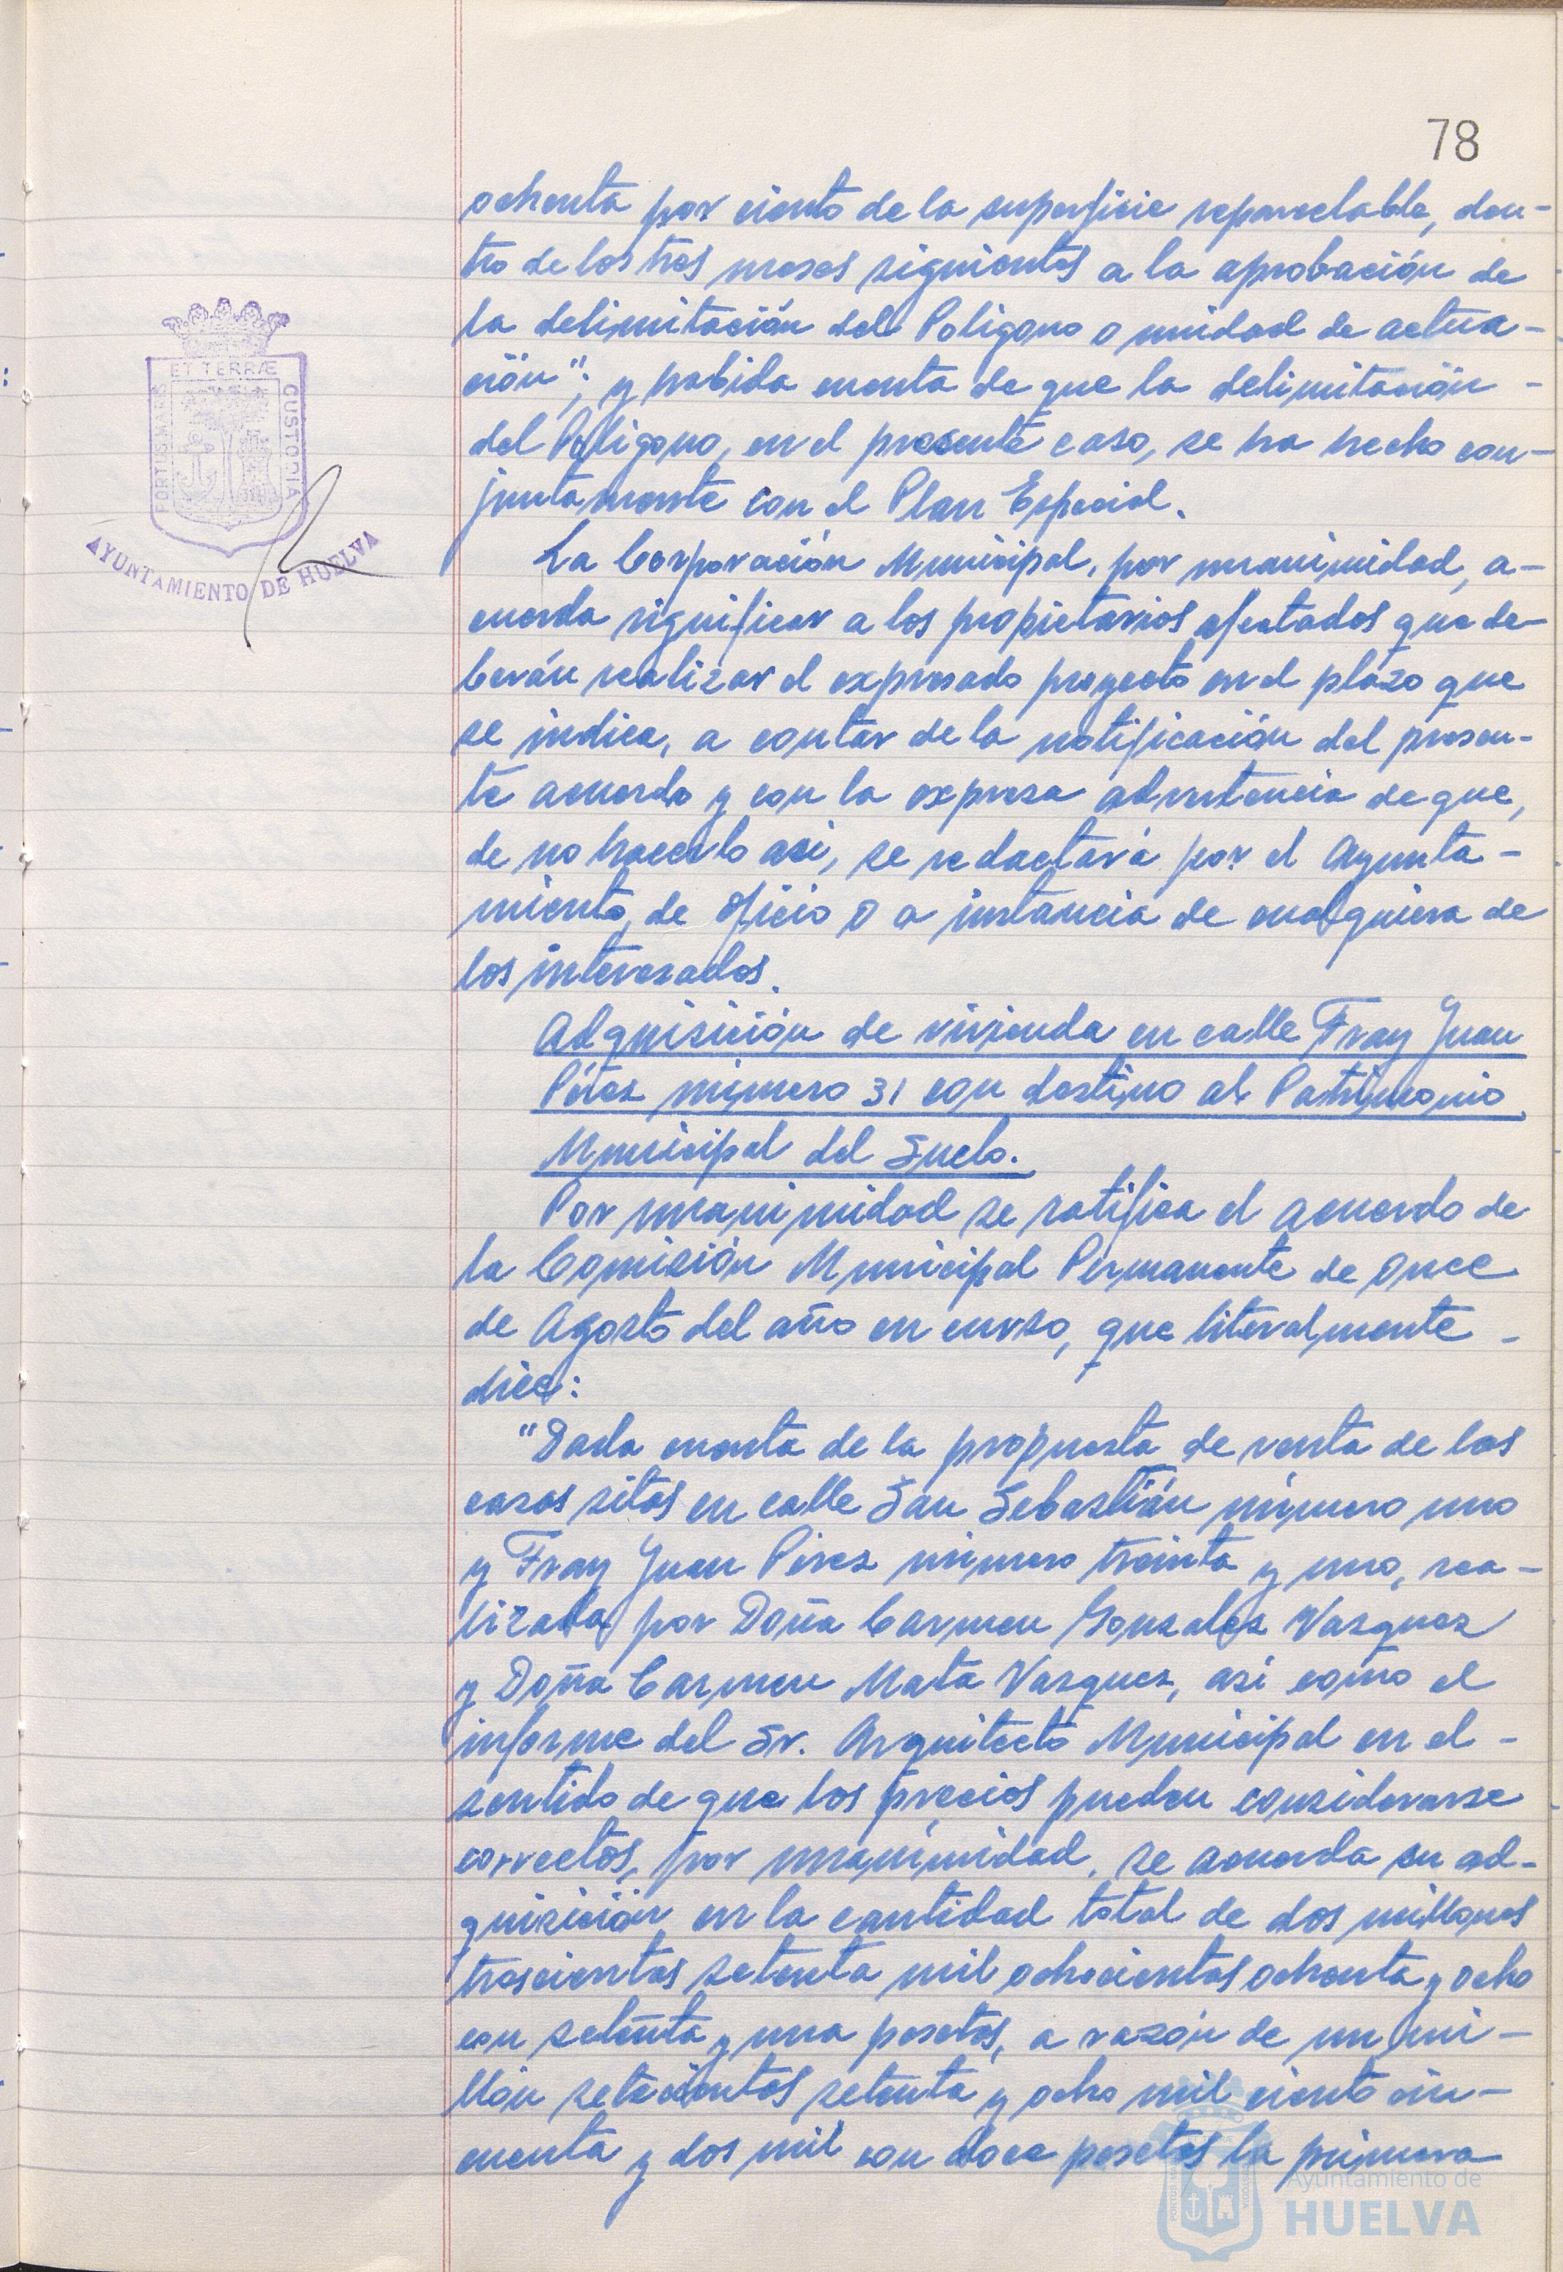 78
ochenta por ciento de la superficie reparcelable, den-
tro de los tres meses siguientes a la aprobación de
la delimitación del Polígono o unidad de actua-
ción"; y habida cuenta de que la delimitación -
del Polígono, en el presente caso, se ha hecho con-
juntamente con el Plan Especial.
La Corporación Municipal, por unanimidad, a-
cuerda significar a los propietarios afectados que de-
berán realizar el expresado proyecto en el plazo que
se indica, a contar de la notificación del presen-
te acuerdo y con la expresa advertencia de que,
de no hacerlo asi, se redactará por el Ayunta-
miento, de oficio o a instancia de cualquiera de
los interesados.
Adquisición de vivienda en calle Fray Juan
Pérez número 31 con destino al Patrimonio
Municipal del Suelo.
Por unanimidad se ratifica el acuerdo de
la Comisión Municipal Permanente de once
de Agosto del año en curso, que literalmente -
dice:
"Dada cuenta de la propuesta de venta de las
casas sitas en calle San Sebastián número uno
y Fray Juan Pérez número treinta y uno, rea-
lizada por Doña Carmen Gonzalez Vazquez
y Doña Carmen Mata Vazquez, asi como el
informe del Sr. Arquitecto Municipal en el -
sentido de que los precios pueden considerarse
correctos, por unanimidad, se acuerda su ad-
quisición en la cantidad total de dos millones
trescientas setenta mil ochocientas ochenta y ocho
con setenta y una pesetas, a razón de un mi-
llón setecientas setenta y ocho mil ciento cin-
cuenta y dos mil con doce pesetas la primera
ET TERRÆ
PORTUS MARIS
CUSTODIA
AYUNTAMIENTO DE HUELVA
Ayuntamiento de
HUELVA